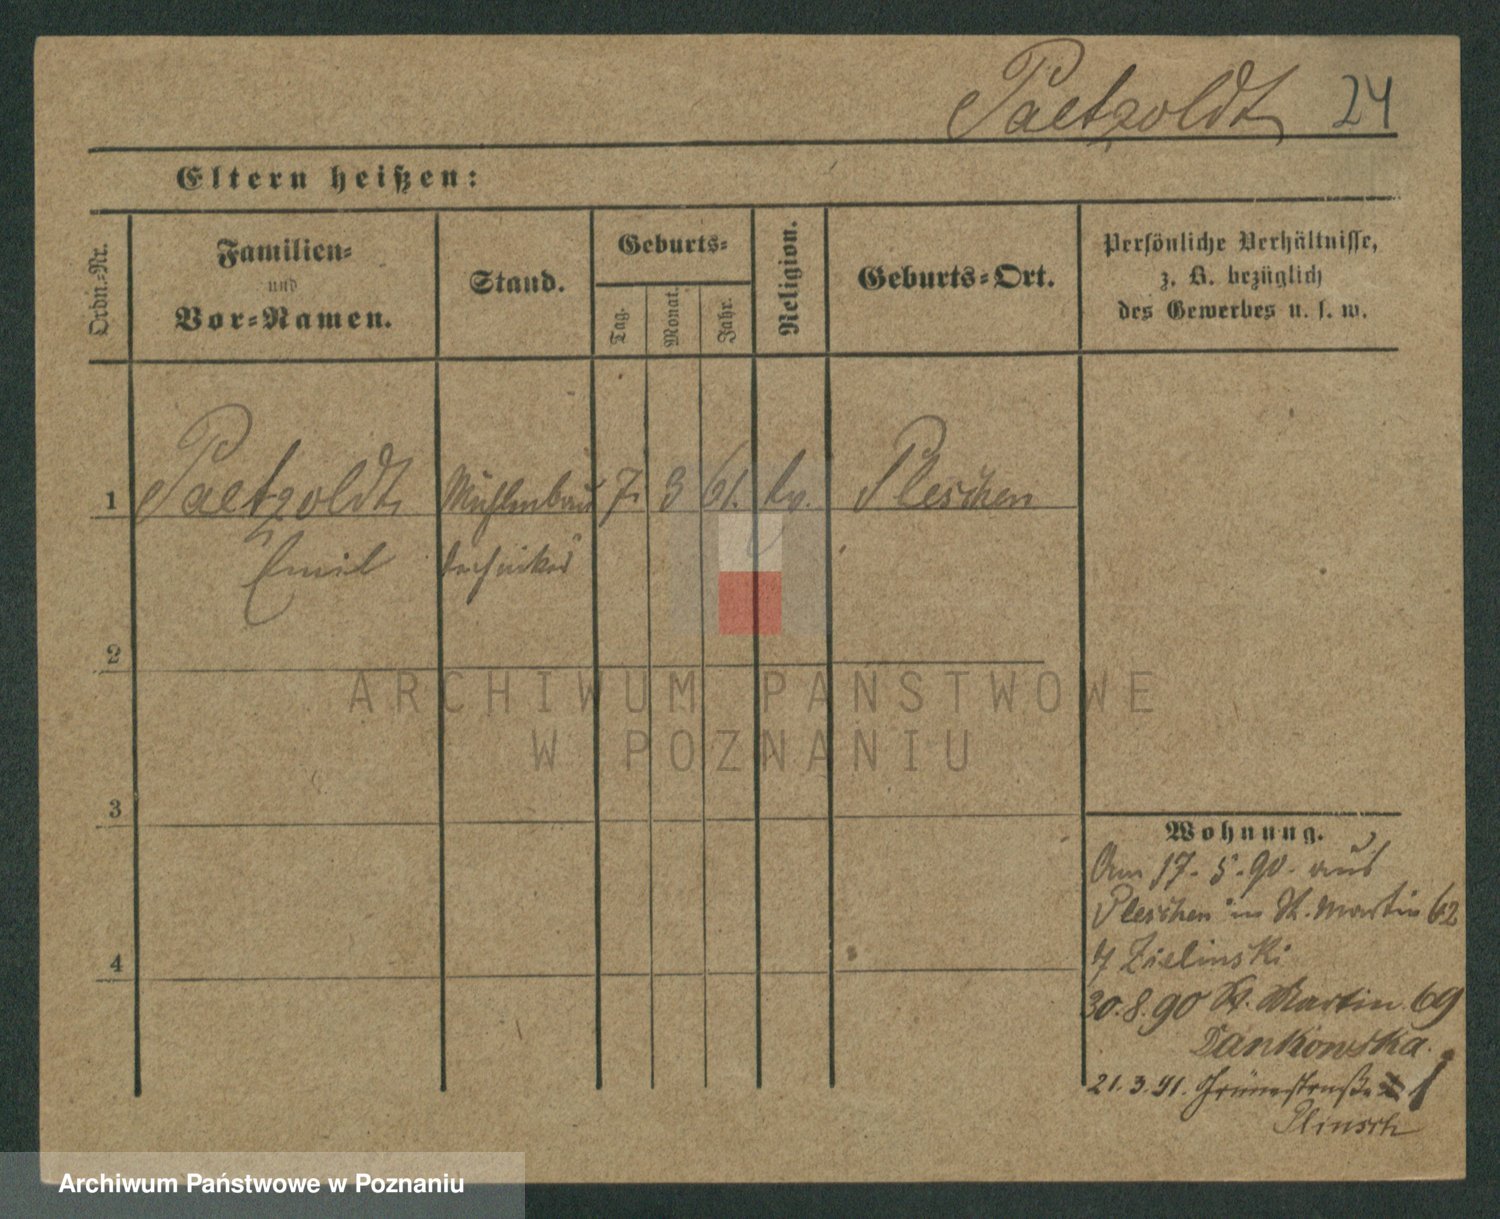 Paetzoldt 24
Eltern heißen:
Ordn.-Nr.
Familien-
und
Vor-Namen.
Stand.
Geburts-
Tag.
Monat.
Jahr.
Religion.
Geburts-Ort.
Persönliche Verhältnisse,
z. B. bezüglich
des Gewerbes u. s. w.
1 Paetzoldt Mühlenbau 7. 3 61. ev. Pleschen
Emil techniker
2
3
4
ARCHIWUM PAŃSTWOWE
W POZNANIU
Wohnung.
Am 17. 5. 90. aus
Pleschen in St. Martin 62
Zielinski
30.8.90 St. Martin 69
Dankowska.
21.3.91. Grünestraße 1
Plinsch
Archiwum Państwowe w Poznaniu